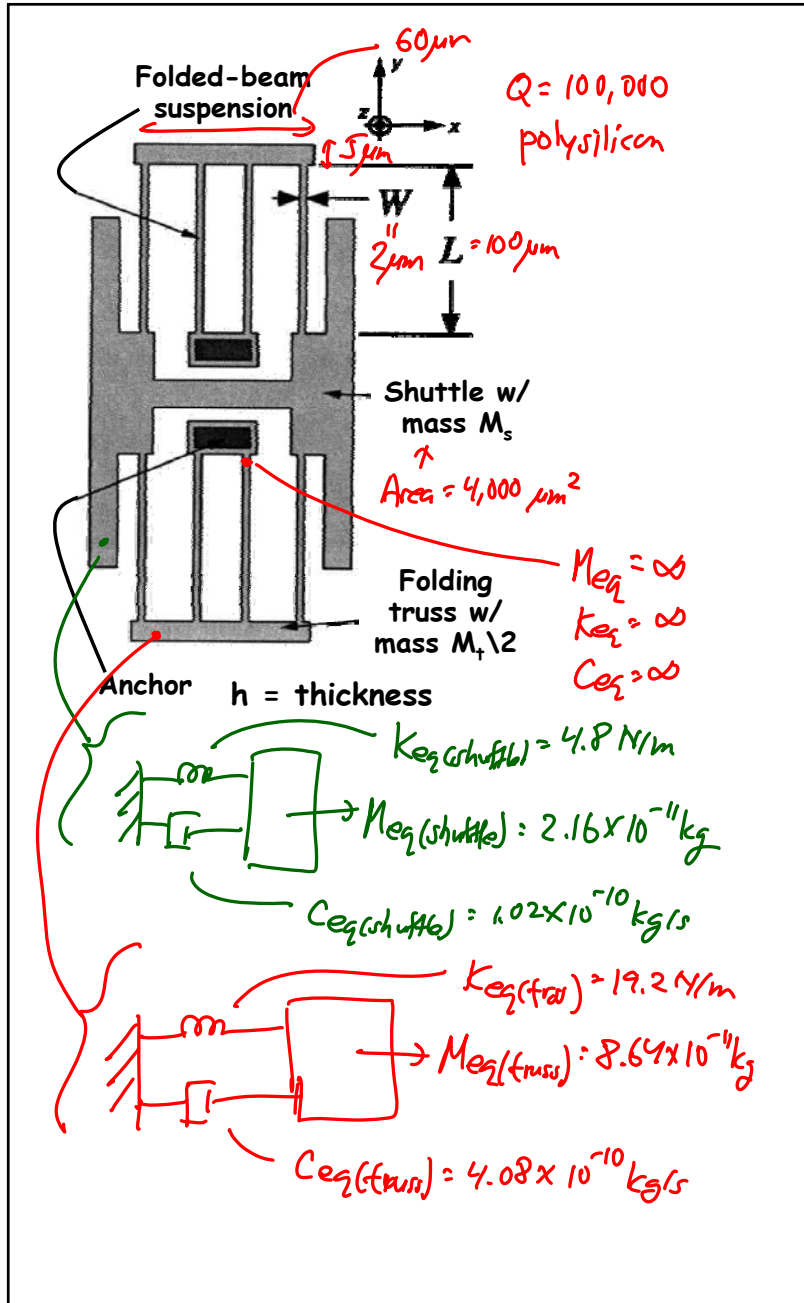 60μm
Folded-beam
suspension
y
z
x
Q = 100,000
polysilicon
5μm
W
"
2μm
L = 100μm
Shuttle w/
mass Ms
Area = 4,000 μm²
Meq = ∞
Keq = ∞
Ceq = ∞
Folding
truss w/
mass Mt\2
Anchor
h = thickness
Keq(shuttle) = 4.8 N/m
Meq(shuttle) = 2.16 × 10⁻¹¹ kg
Ceq(shuttle) = 1.02 × 10⁻¹⁰ kg/s
Keq(truss) = 19.2 N/m
Meq(truss) = 8.64 × 10⁻¹¹ kg
Ceq(truss) = 4.08 × 10⁻¹⁰ kg/s